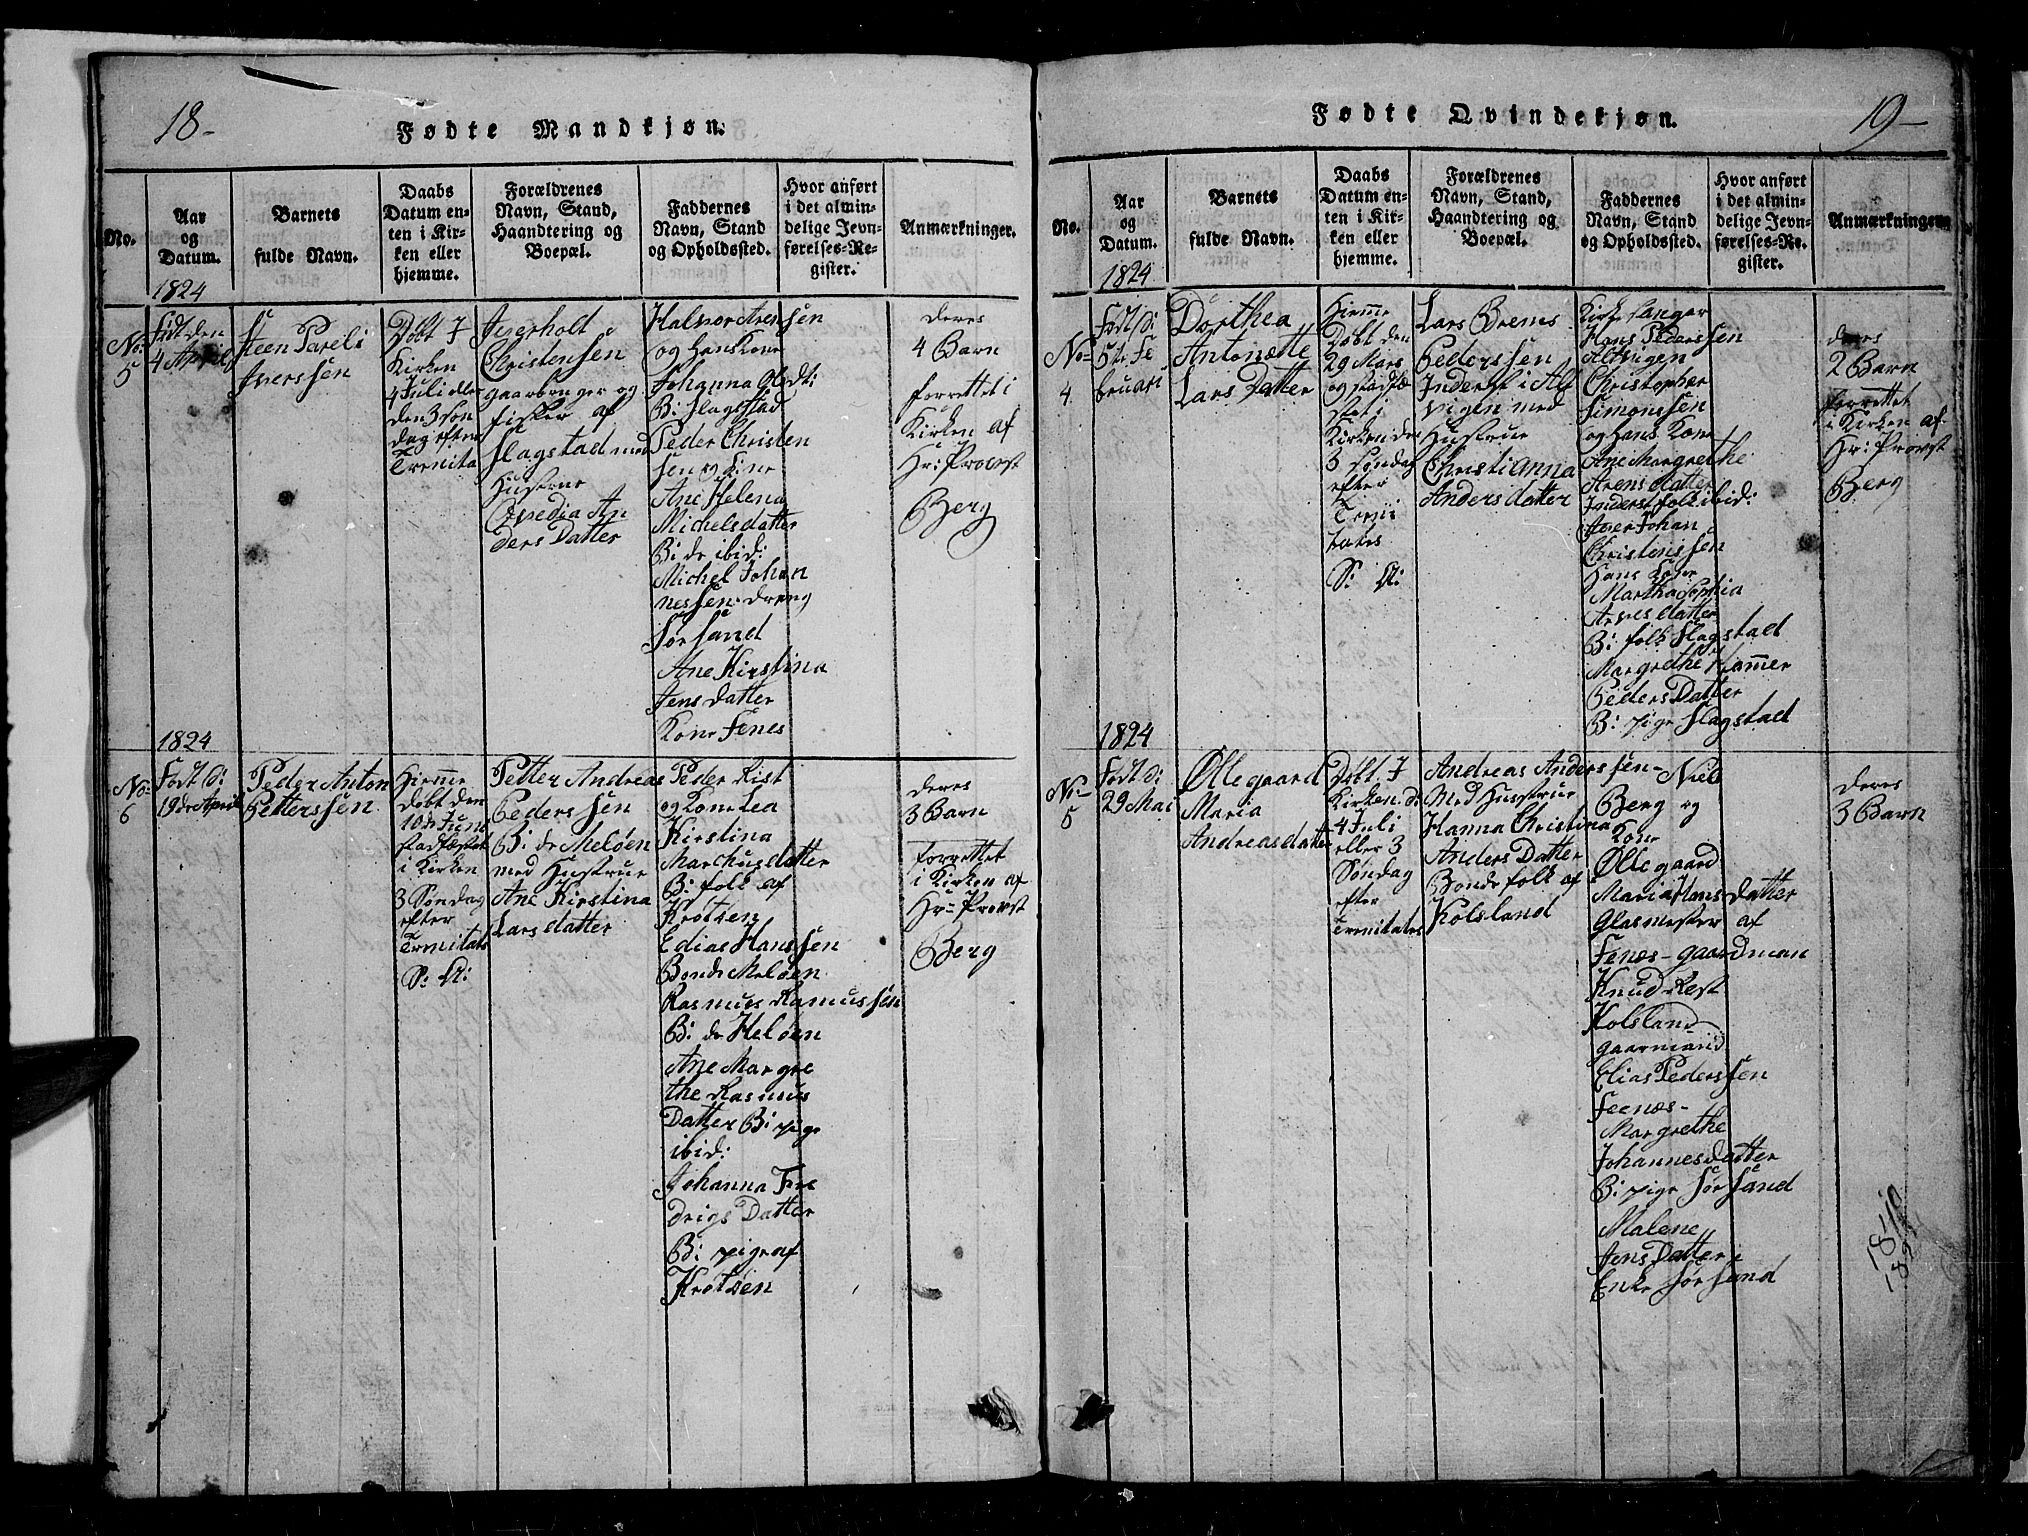 18-
Fødte Mandkjøn.
No.
Aar
og
Datum.
1824
Barnets
fulde Navn.
Daabs
Datum en-
ten i Kir-
ken eller
hjemme.
Forældrenes
Navn, Stand,
Haandtering og
Boepæl.
Faddernes
Navn, Stand
og Opholdssted.
Hvor anført
i det almin-
delige Jevn-
førelses-Re-
gister.
Anmærkninger.
No:
5
Født den
4 April
Steen Pareli
Iverssen
Døbt I
Kirken
4 Juli eller
den 3 Søn
dag efter
Trenita
Christenssen
gaarbruger og
fisker af
Flagstad med
Hustrue
An
ders Datter
Halvor Arenssen
og Hans Kone
Johanna
B: Flagstad
Peder Christen
sen og Kone
Ane Helena
Michelsdatter
B: de ibid:
Michel Johan
nessen dreng
Sørsand
Ane Kirstina
Jens Datter
Kone Fenes
deres
4 Barn
forrettet i
Kirken af
Hr: Provst
Berg
1824
No:
6
Født d:
19de April
Peder Anton
Petterssen
Hiemme
døbt den
10de Juni
stadfæstet
i Kirken
3 Søndag
efter
Trenitats
S: A:
Petter Andreas
Pederssen
B: de Meløen
med Hustrue
Ane Kirstina
Larsdatter
Peder Rist
og Kone Lea
Kirstina
Marchusdatter
B: folk af
Krotøen
Edias Hanssen
Bonde Meløen
Rasmus Ramussen
B: de Heløen
Ane Margre
the Rasmus
Datter B: pige
ibid:
Johanna Fre
drigs Datter
B: pige af
Krotøen
deres
3 Barn
forrettet
i Kirken af
Hr: Provst
Berg
Fødte Qvindekjøn.
19-
No.
Aar
og
Datum.
1824
Barnets
fulde Navn.
Daabs
Datum en-
ten i Kir-
ken eller
hjemme.
Forældrenes
Navn, Stand,
Haandtering og
Boepæl.
Faddernes
Navn, Stand
og Opholdssted.
Hvor anført
i det almin-
delige Jevn-
førelses-Re-
gister.
Anmærkninger
No:
4
Født d:
5te Fe
bruari
Dorthea
Antonette
Lars Datter
Hiemme
Døbt den
29 Mars
og stadfæ
stet i
Kirken den
3 søndag
efter
Treni
tates
S: A:
Lars Brems
Pederssen
Inderst i Al
vigen med
Hustrue
Christianna
Anders datter
Kirke sanger
Hans Pederssen
Altvigen
Christopher
Simonssen
og Hans Kone
Ane Margrethe
Arens datter
Inderst folk ibid:
Iver Johan
Christenssen
Hans Kone
Martha Sophia
Arnes datter
B: folk Flagstad
Margrethe Hammer
Peders Datter
B: pige Flagstad
deres
2 Barn
forrettet
i Kirken af
Hr: Provst
Berg
1824
No:
5
Født d:
29 Mai
Ollegaard
Maria
Andreasdatter
Døbt I
Kirken d:
4 Juli
eller 3
Søndag
efter
Trenitates
Andreas Anderssen
Med Hustrue
Hanna Christina
Anders Datter
Bonde folk af
Kolsland
Niels
Berg og
Kone
Ollegaard
Maria Hans Datter
Glasmester af
Fenes - gaardman
Knud Rest
Kolsland
gaarmand
Elias Pederssen
Feenes-
Margrethe
Johannesdatter
B: pige Sørsand
Malene
Jens Datter
Enke Sørsand
deres
3 Barn